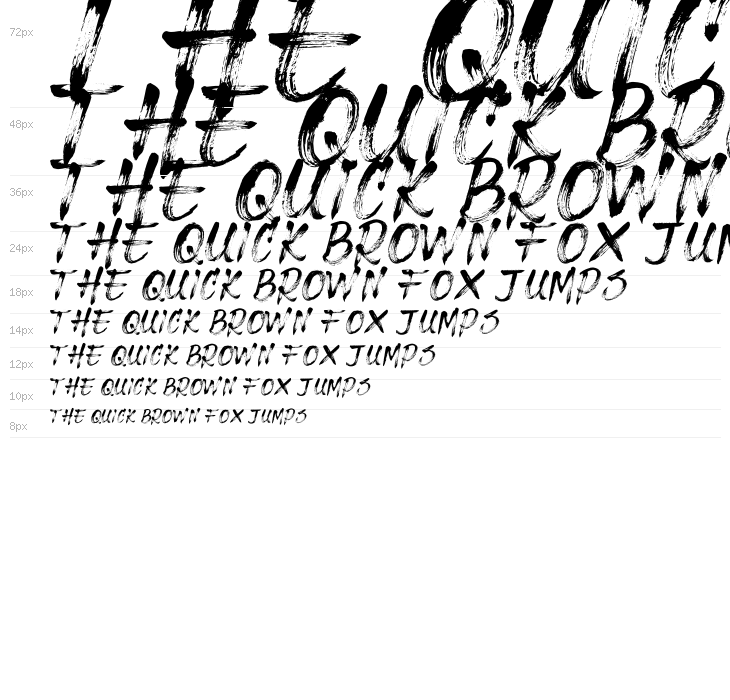 72px THE QUIC
48px THE QUICK BR
36px THE QUICK BROWN
24px THE QUICK BROWN FOX JUM
18px THE QUICK BROWN FOX JUMPS
14px THE QUICK BROWN FOX JUMPS
12px THE QUICK BROWN FOX JUMPS
10px THE QUICK BROWN FOX JUMPS
8px THE QUICK BROWN FOX JUMPS